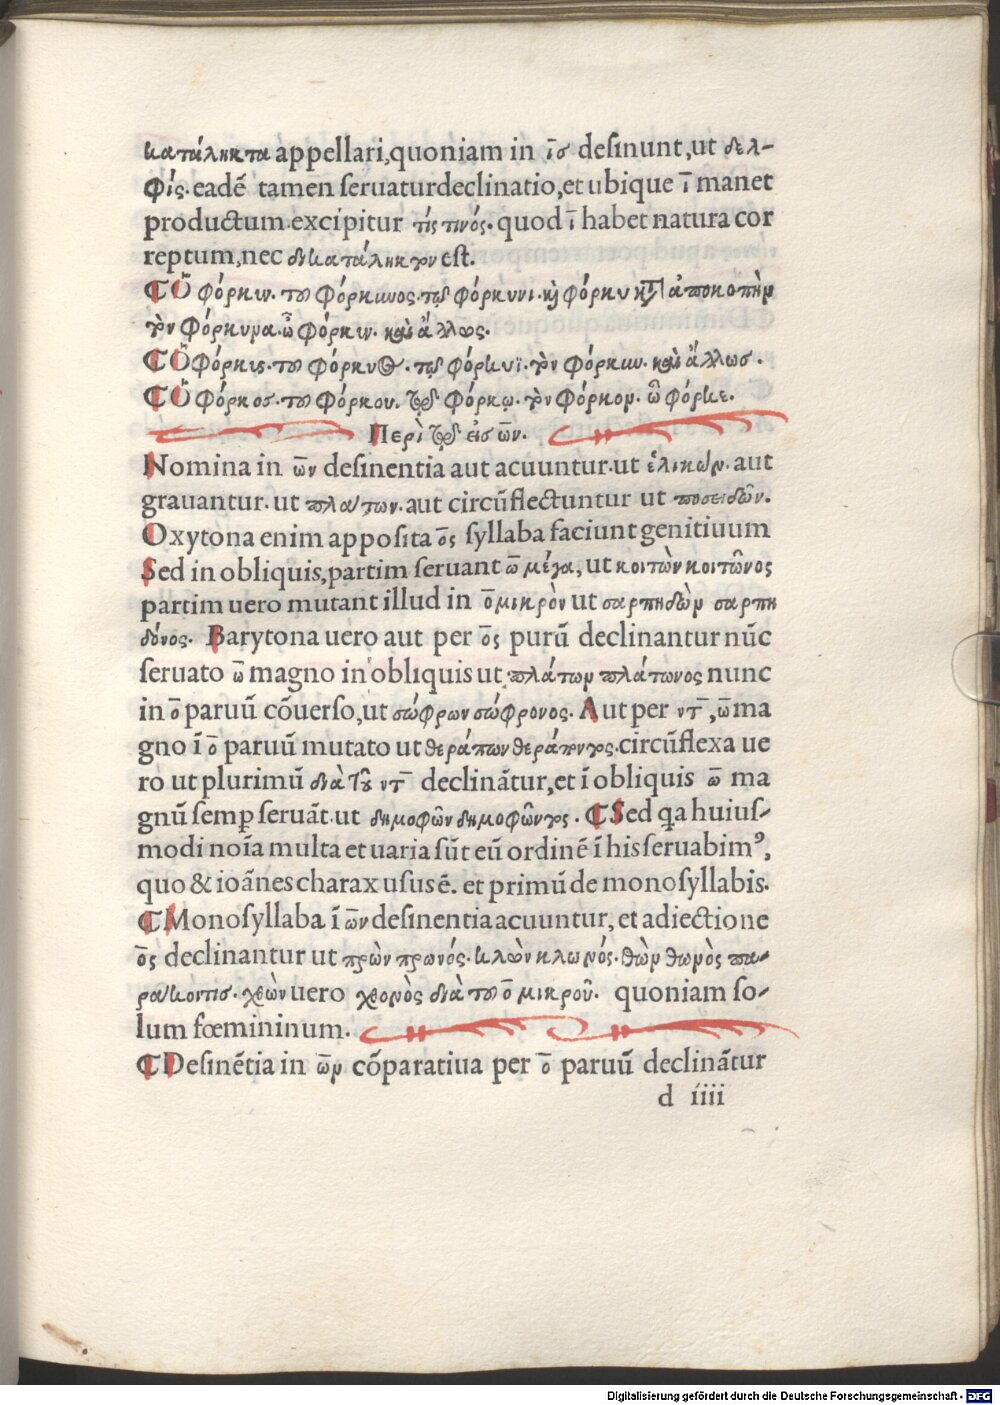 κατάληκτα appellari,quoniam in ῑσ desinunt,ut δελ-
φίς.eadē tamen seruaturdeclinatio,et ubique ī manet
productum.excipitur τίς τινός. quod ī habet natura cor
reptum,nec δικατάληκτον est.
¶ Ὁ φόρκιν. τοῦ φόρκυνος.τῷ φόρκυνι.κὶ φόρκυ κατ᾽ ἀποκοπὴν
τὸν φόρκυνα.ὦ φόρκιν. καὶ ἄλλως.
¶ Ὁ φόρκις.τοῦ φόρκυος. τῷ φόρκυϊ.τὸν φόρκιν. καὶ ἄλλωσ.
¶ Ὁ φόρκοσ.τοῦ φόρκου. τῷ φόρκῳ.τὸν φόρκον. ὦ φόρκε.
Περὶ τῶν εἰσ ω̄ν.
Nomina in ω̄ν desinentia aut acuuntur.ut ἑλικών. aut
grauantur. ut πλάτων. aut circūflectuntur ut ποσειδῶν.
Oxytona enim apposita ο̄ς syllaba faciunt genitiuum
Sed in obliquis,partim seruant ω̄ μέγα, ut κοιτὼν κοιτῶνος
partim uero mutant illud in ο̄ μικρὸν ut σαρπηδὼν σαρπη
δόνος. Barytona uero aut per ο̄ς purū declinantur nūc
seruato ω̄ magno in obliquis ut πλάτων πλάτωνος nunc
in ο̄ paruū cōuerso,ut σώφρων σώφρονος. Aut per ντ̄ ,ω̄ ma
gno ī ο̄ paruū mutato ut θεράπων θεράποντος.circūflexa ue
ro ut plurimū διὰ τοῦ ντ̄ declinātur,et ī obliquis ω̄ ma
gnū semp̄ seruāt.ut δημοφῶν δημοφῶντος. ¶ Sed qa huius-
modi noīa multa et uaria sūt eū ordinē ī his seruabimꝰ,
quo & ioānes charax usus ē. et primū de monosyllabis.
¶ Monosyllaba ī ω̄ν desinentia acuuntur, et adiectione
ο̄ς declinantur ut πρὼν πρωνός. κλὼν κλωνός. θὼν θωνὸς πα-
ράκοιτισ. χθὼν uero χθονὸς διὰ τοῦ ο̄ μικροῦ. quoniam so-
lum fœmininum.
¶ Desinētia in ω̄ν cōparatiua per ο̄ paruū declinātur
d iiii
Digitalisierung gefördert durch die Deutsche Forschungsgemeinschaft - DFG